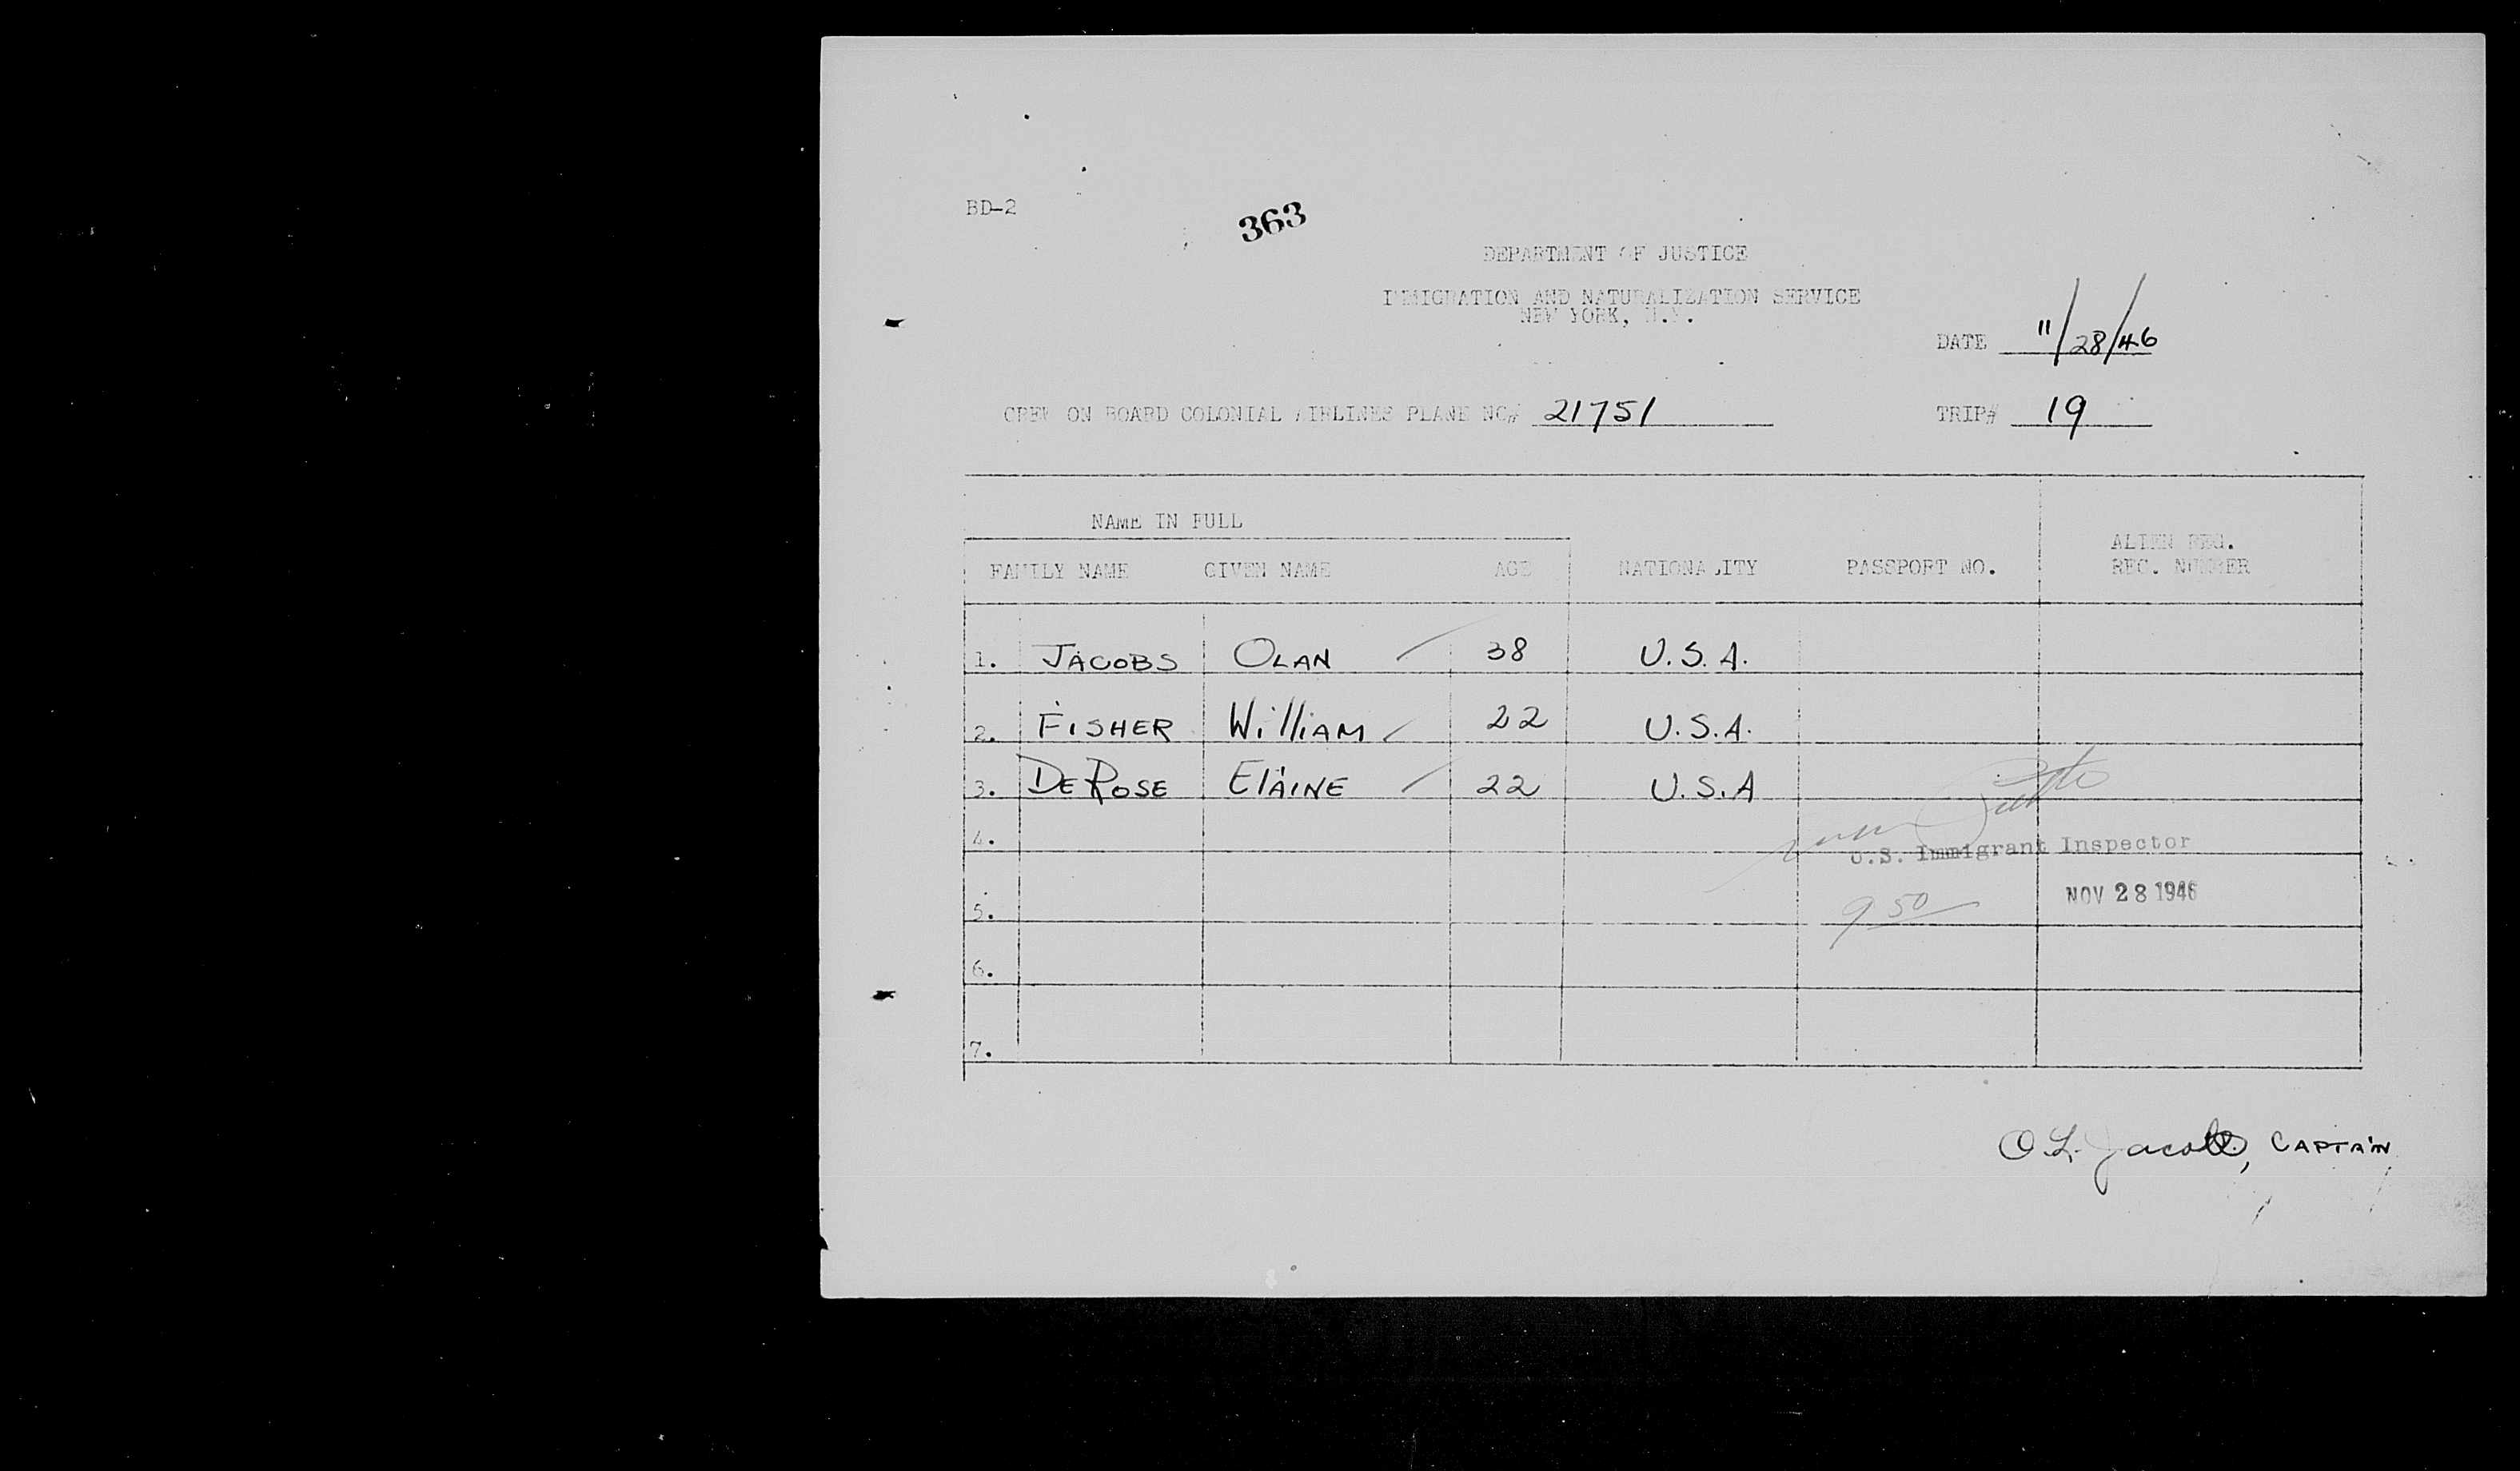 BD-2
363
DEPARTMENT OF JUSTICE
IMMIGRATION AND NATURALIZATION SERVICE
NEW YORK, N.Y.
DATE 11/28/46
CREW ON BOARD COLONIAL AIRLINES PLANE NO# 21751 TRIP# 19
NAME IN FULL
ALIEN REG.
FAMILY NAME GIVEN NAME AGE NATIONALITY PASSPORT NO. REC. NUMBER
1. JACOBS OLAN 38 U.S.A.
2. FISHER WilliAM 22 U.S.A.
3. DEROSE ElAINE 22 U.S.A
4.
U.S. Immigrant Inspector
5. 9 50 NOV 28 1946
6.
7.
O.L. Jacobs, CAPTAIN